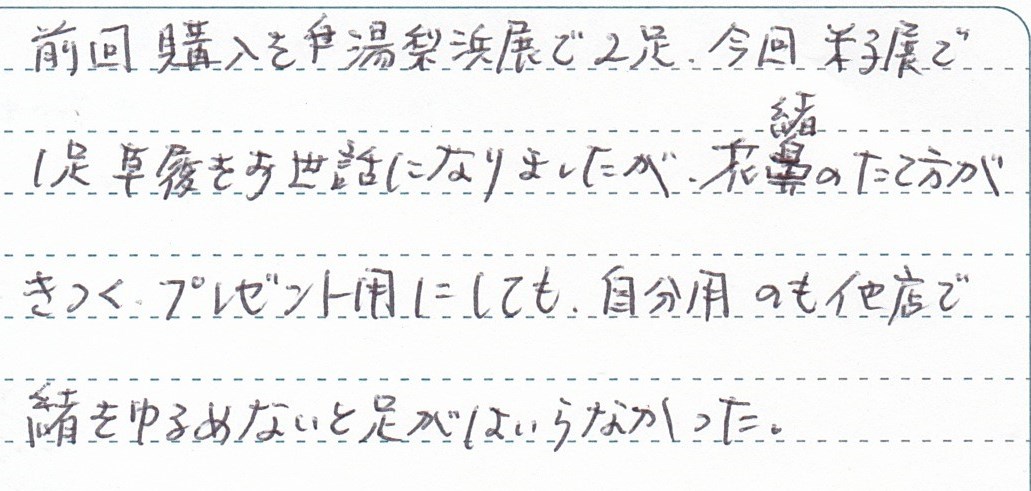 前回 購入を 湯梨浜展で2足、今回 米子展で
1足 草履をお世話になりましたが、花緒のたて方が
きつく、プレゼント用にしても、自分用のも他店で
緒をゆるめないと足がはいらなかった。